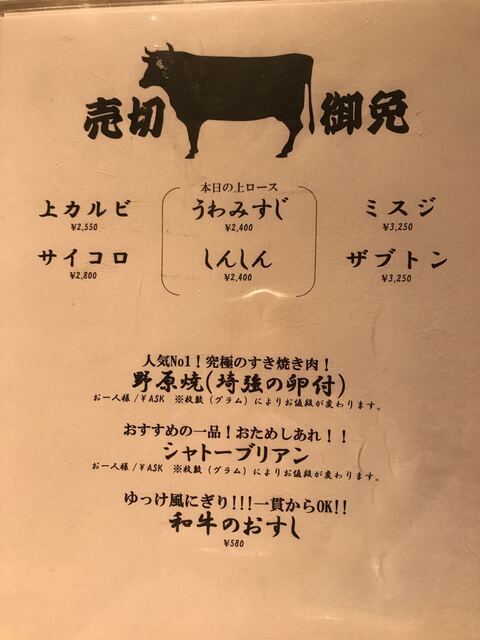 売切 御免
本日の上ロース
上カルビ うわみすじ ミスジ
¥2,550 ¥2,400 ¥3,250
サイコロ しんしん ザブトン
¥2,800 ¥2,400 ¥3,250
人気No1！究極のすき焼き肉！
野原焼(埼強の卵付)
お一人様/¥ASK ※枚数(グラム)によりお値段が変わります。
おすすめの一品！おためしあれ！！
シャトーブリアン
お一人様/¥ASK ※枚数(グラム)によりお値段が変わります。
ゆっけ風にぎり!!!一貫からOK!!
和牛のおすし
¥580